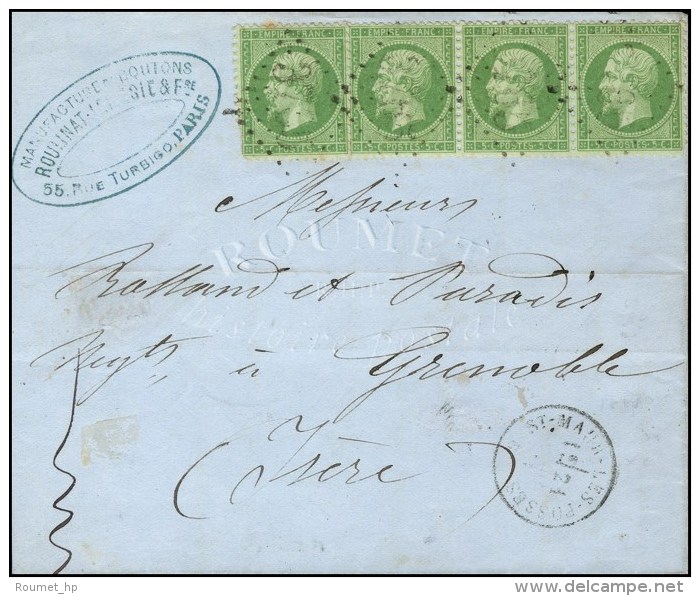 EMPIRE FRANC EMPIRE FRANC EMPIRE FRANC EMPIRE FRANC
5 C POSTES 5 C 5 C POSTES 5 C 5 C POSTES 5 C 5 C POSTES 5 C
MANUFACTURE BOUTONS
& Fre
55, RUE TURBIGO, PARIS
Messieurs
ROUMET
Rolland et Paradis
histoire postale
Negts à Grenoble
(Isère)
ST-MAUR-LES-FOSSES
21
Roumet_hp
delcampe.net